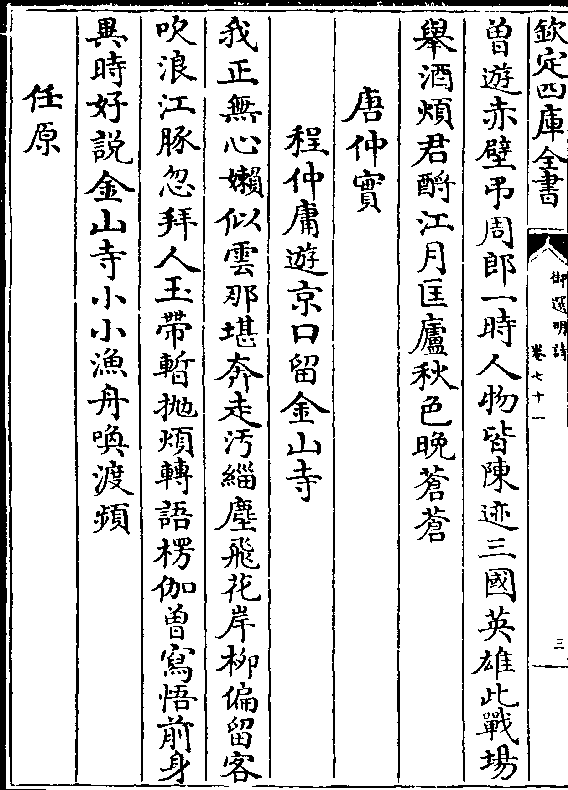 欽定四庫全書
御選明詩
卷七十一
三
曽遊赤壁弔周郎一時人物皆陳迹三國英雄此戰場
舉酒煩君酹江月匡廬秋色晚蒼蒼
唐仲實
程仲庸遊京口留金山寺
我正無心嬾似雲那堪奔走汚緇塵飛花岸柳偏留客
吹浪江豚忽拜人玉帶暫抛煩轉語楞伽曽寫悟前身
異時好説金山寺小小漁舟喚渡頻
任原